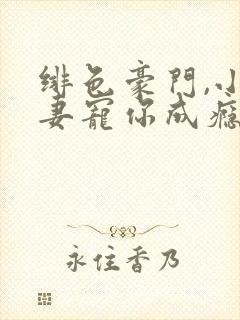 绯色豪門,小
妻寵你成瘾
永住香乃